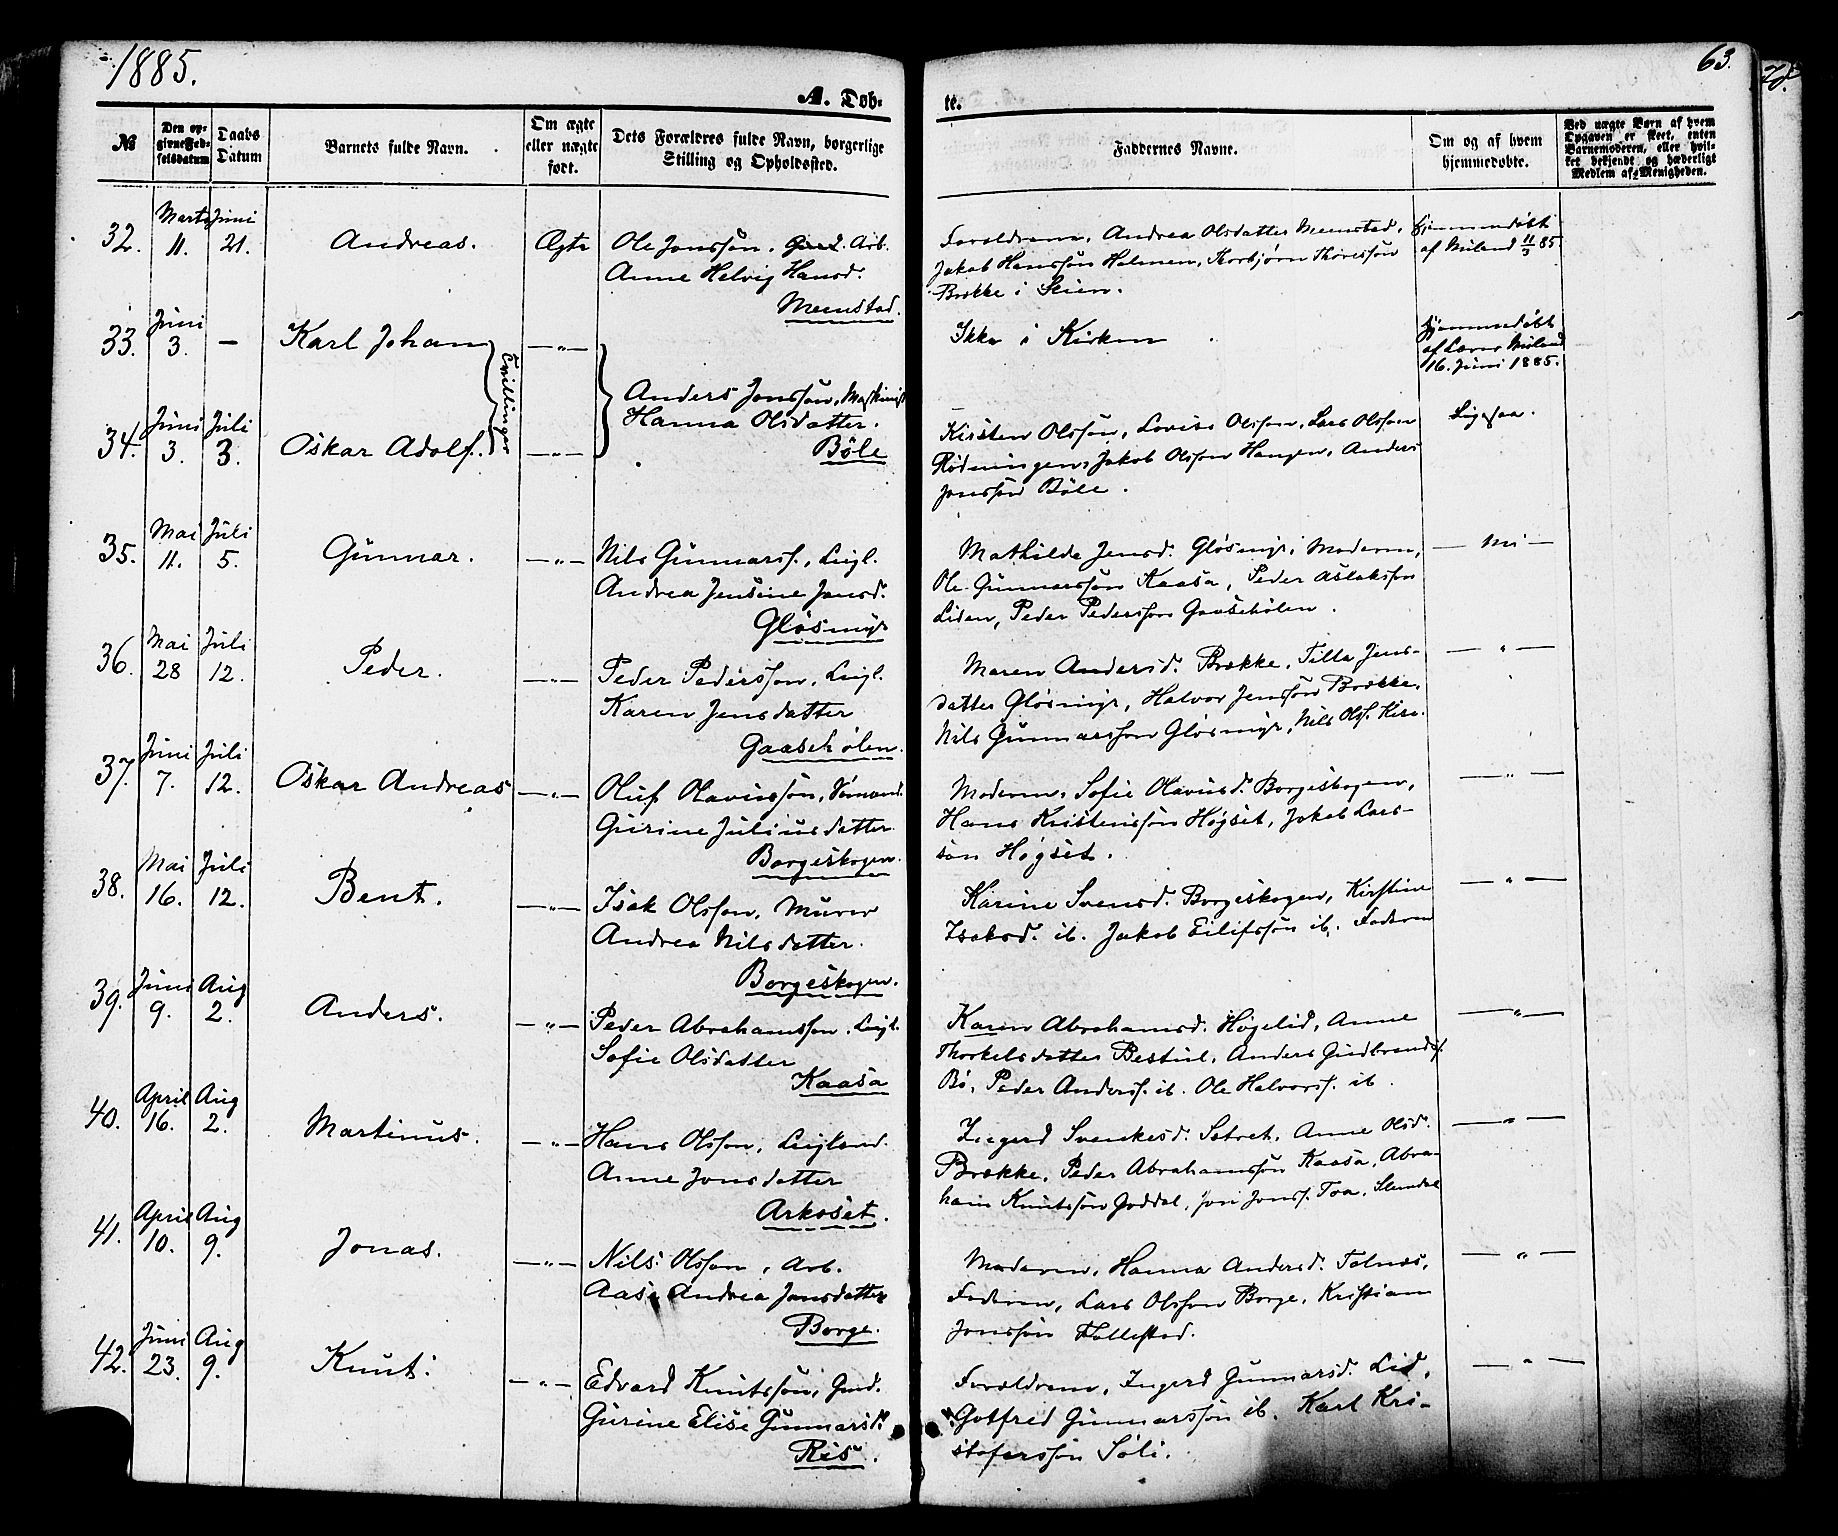 1885.
63.
A. Døb-
te.
№
Den op-
givne Fød-
selsdatum
Daabs
Datum
Barnets fulde Navn.
Om ægte
eller uægte
født.
Dets Forældres fulde Navn, borgerlige
Stilling og Opholdssted.
Faddernes Navne.
Om og af hvem
hjemmedøbt.
Ved uægte Børn af hvem
Opgaven er skeet, enten
Barnemoderen, eller hvil-
ket bekjendt og hæderligt
Medlem af Menigheden.
32. Marts 11. Juni 21. Andreas. Ægte
Ole Jonssøn, Arb.
Anne Helvig Hansd.
Menstad.
Forældrene, Andrea Olsdatter Menstad,
Jakob Hanssøn Holmen, Thorbjørn Thoressøn
Brekke i Skien.
Hjemmedøbt
af Miland 11/3 85
33. Juni 3. — Karl Johan — „ —
Tvillinger
Ikke i Kirken
Hjemmedøbt
af Lærer Miland
16. Juni 1885.
34. Juni 3. Juli 3. Oskar Adolf. — „ —
Anders Jonssøn, Maskinist
Hanna Olsdatter.
Bøle
Kirsten Olssøn, Lovise Olssøn, Lars Olssøn
Rødningen, Jakob Olsson Haugen, Anders
Jonssøn Bøle.
Ligesaa.
35. Mai 11. Juli 5. Gunnar. — „ —
Nils Gunnarss., Leigl.
Andrea Jensine Jensd.
Gløsmyr
Mathilde Jensd. Gløsmyr, Moderen,
Ole Gunnarssøn Kaasa, Peder Aslakssøn
Liden, Peder Pederssøn Gaasehølen.
— Nei —
36. Mai 28 Juli 12. Peder. — „ —
Peder Pederssøn, Leigl.
Karen Jensdatter
Gaasehølen.
Maren Andersd. Brekke, Tilla Jens-
datter Gløsmyr, Halvor Jenssøn Brekke,
Nils Gunnarssøn Gløsmyr, Nils Olss.
— „ —
37. Juni 7. Juli 12. Oskar Andreas — „ —
Oluf Olavussøn, Sømand.
Gurine Juliusdatter
Borgeskogen.
Moderen, Sofie Olavusd. Borgeskogen,
Hans Kristenssøn Høgset, Jakob Lars-
søn Høgset.
— „ —
38. Mai 16. Juli 12. Bent. — „ —
Isak Olssøn, Murer
Andrea Nilsdatter.
Borgeskogen.
Karine Svensd. Borgeskogen, Kirstine
Isaksd. ib. Jakob Eilifssøn ib. Faderen
— „ —
39. Juni 9. Aug 2. Anders. — „ —
Peder Abrahamssøn, Leigl.
Sofie Olsdatter
Kaasa
Karen Abrahamsd. Høgelid, Anne
Thorkelsdatter Bestul, Anders Gudbrands.
Bø, Peder Anderss. ib. Ole Halvorss. ib.
— „ —
40. April 16. Aug 2. Martinus. — „ —
Hans Olssøn, Leiglend.
Anne Jonsdatter
Arkeset.
Ingerd Svenkesd. Setret, Anne Olsd.
Brekke, Peder Abrahamssøn Kaasa, Abra-
ham Knutssøn Joddal, Jon Jonss.
— „ —
41. April 10. Aug 9. Jonas. — „ —
Nils Olssøn, Arb.
Aase Andrea Jonsdatter
Borge.
Moderen, Hanna Andersd. Tolnes,
Faderen, Lars Olssøn Borge, Kristian
Jonssøn Follestad.
— „ —
42. Juni 23. Aug 9. Knut. — „ —
Edvard Knutssøn, Grd.
Gurine Elise Gunnarsd.
Ris.
Forældrene, Ingerd Gunnarsd. Lid,
Gotfred Gunnarssøn ib. Karl Kri-
stoferssøn Søli.
— „ —